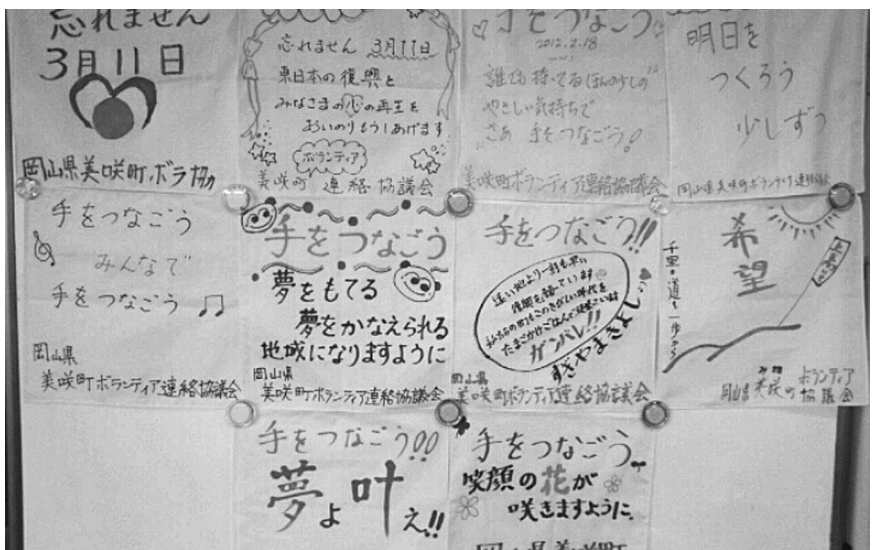 忘れません
3月11日
岡山県美咲町ボラ協
忘れません 3月11日
東日本の復興と
みなさまの心の再生を
おいのりもうしあげます
ボランティア
美咲町 連絡協議会
手をつなごう
2012.2.18
誰でも持ってるほんの少しの
やさしい気持ちで
さあ 手をつなごう!
美咲町ボランティア連絡協議会
明日を
つくろう
少しずつ
岡山県美咲町ボランティア連絡協議会
手をつなごう
みんなで
手をつなごう
岡山県
美咲町ボランティア連絡協議会
手をつなごう
夢をもてる
夢をかなえられる
地域になりますように
岡山県
美咲町ボランティア連絡協議会
手をつなごう!!
遠い地より一刻も早い
復興を
たまごかけごはんで
ガンバレ!!
すぎやまきよし
岡山県
美咲町ボランティア連絡協議会
希望
千里の道も一歩から
岡山県美咲町ボランティア
協議会
手をつなごう!!
夢よ叶え!!
手をつなごう
笑顔の花が
咲きますように
岡山県美咲町